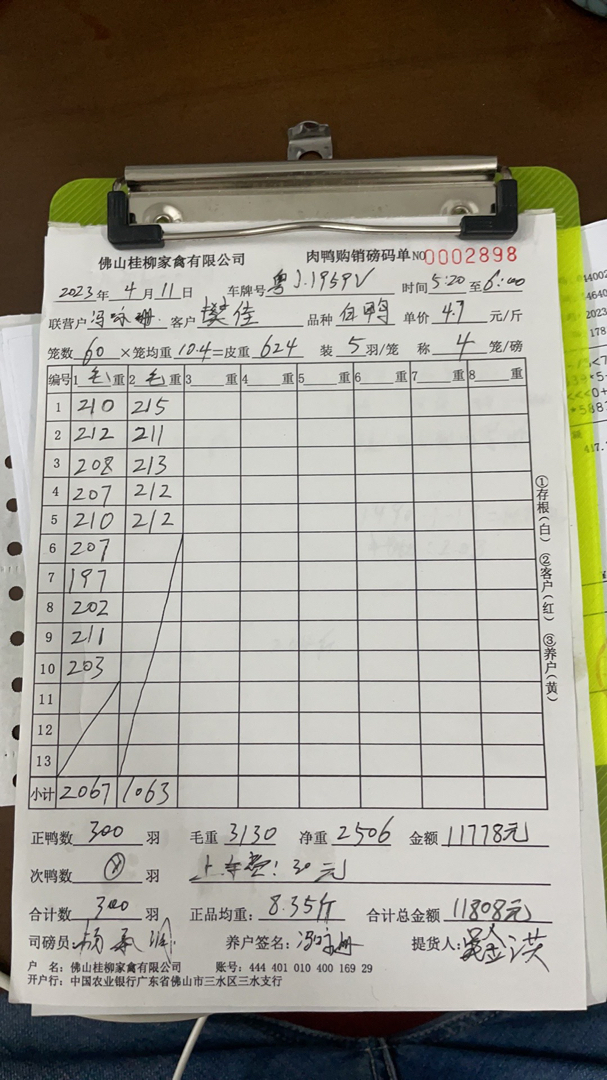 佛山桂柳家禽有限公司 肉鸭购销磅码单 NO 0002898
2023年 4月11日 车牌号 粤J.1959V 时间5:20至6:00
联营户 冯咏珊 客户 樊佳 品种 白鸭 单价 4.7 元/斤
笼数 60 ×笼均重 10.4=皮重 624 装 5 羽/笼 称 4 笼/磅
编号 1 毛 重 2 毛 重 3 重 4 重 5 重 6 重 7 重 8 重
1 210 215
2 212 211
3 208 213
4 207 212
5 210 212
6 207
7 197
8 202
9 211
10 203
11
12
13
小计 2067 1063
①存根(白) ②客户(红) ③养户(黄)
正鸭数 300 羽 毛重 3130 净重 2506 金额 11778元
次鸭数 羽 上车费: 30元
合计数 300 羽 正品均重: 8.35斤 合计总金额 11808元
司磅员: 杨 养户签名: 冯咏珊 提货人: 金洪
户 名: 佛山桂柳家禽有限公司 账号: 444 401 010 400 169 29
开户行: 中国农业银行广东省佛山市三水区三水支行